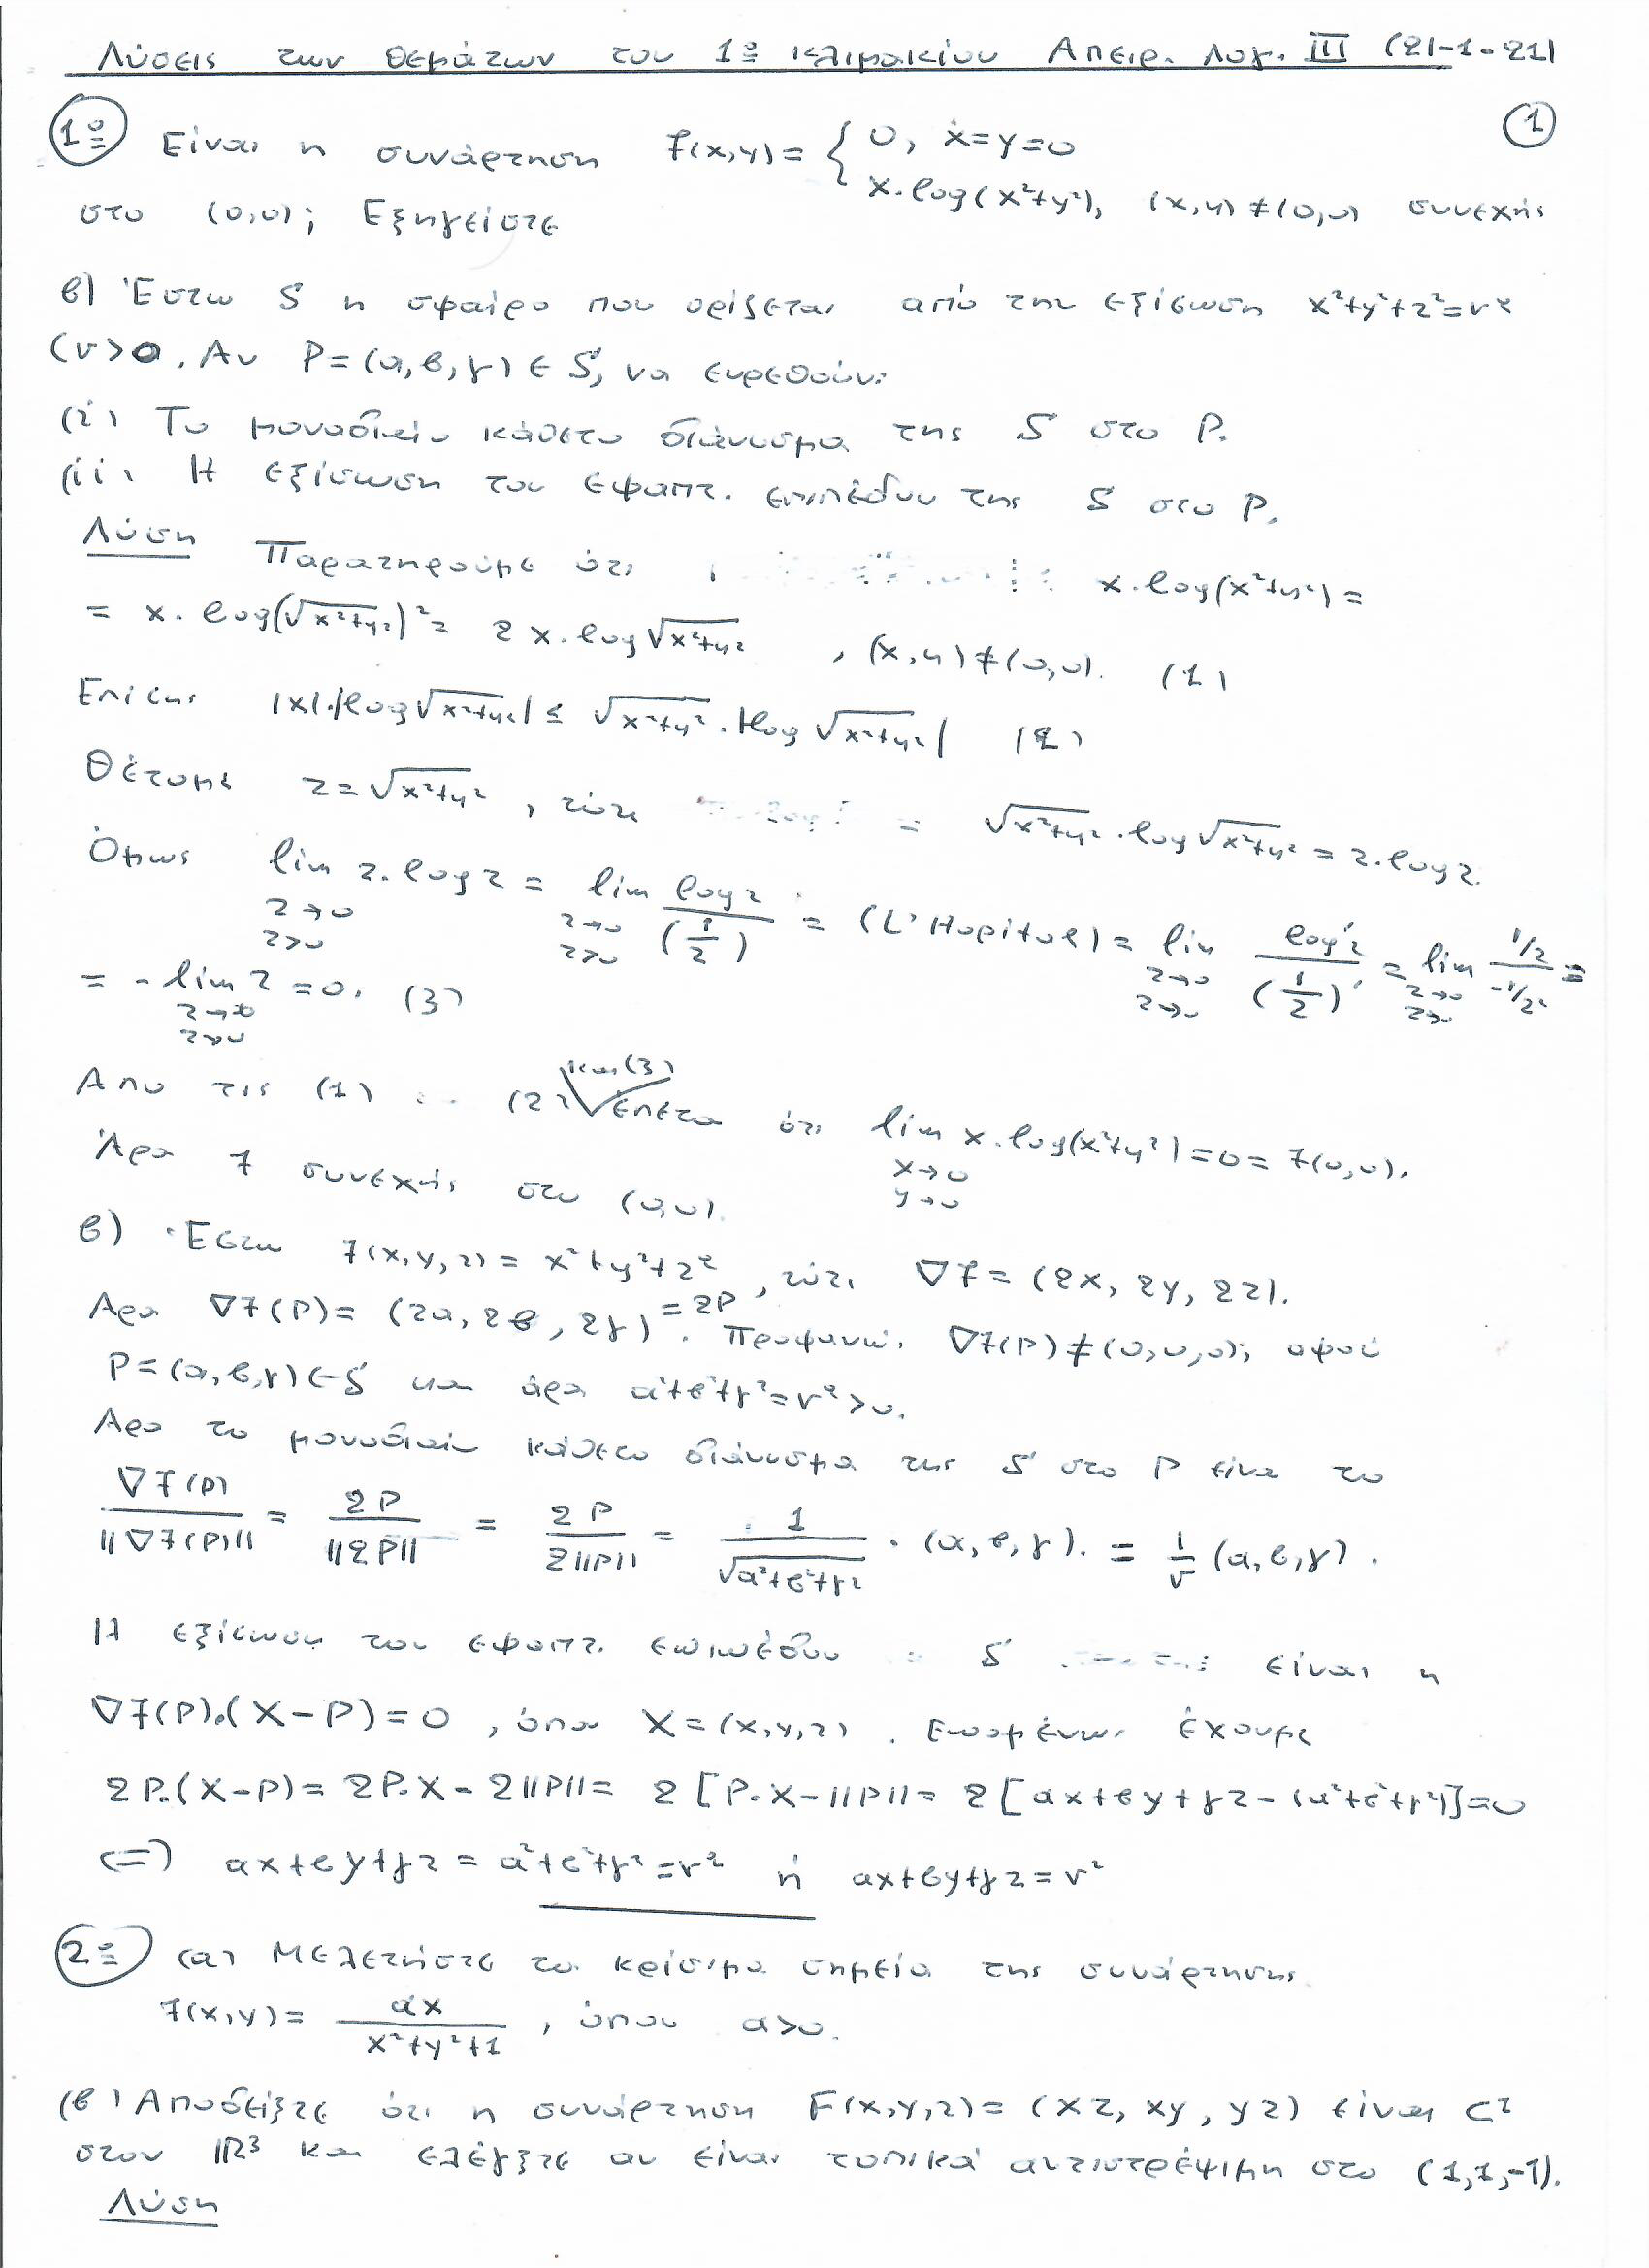 Λύσεις των θεμάτων του 1º κλιμακίου Απειρ. Λογ. III (21-1-21)
1º Είναι η συνάρτηση f(x,y)= { 0, x=y=0
x·log(x²+y²), (x,y)≠(0,0) συνεχής
1
στο (0,0); Εξηγείστε
β) Έστω S η σφαίρα που ορίζεται από την εξίσωση x²+y²+z²=r²
(r>0. Αν P=(α,β,γ)∈S, να ευρεθούν:
(i) Το μοναδιαίο κάθετο διάνυσμα της S στο P.
(ii) Η εξίσωση του εφαπτ. επιπέδου της S στο P.
Λύση Παρατηρούμε ότι x·log(x²+y²)=
= x·log(√x²+y²)² = 2x·log√x²+y² , (x,y)≠(0,0). (1)
Επίσης |x|·|log√x²+y²| ≤ √x²+y²·|log√x²+y²| (2)
Θέτομε z=√x²+y² , τότε = √x²+y²·log√x²+y² = z·logz.
Όμως lim z·logz = lim logz/(1/z) = (L'Hopital) = lim log'z/(1/z)' = lim 1/z / -1/z² =
z→0 z>0 z→0 z>0 z→0 z>0 z→0 z>0
= - lim z = 0. (3)
z→0 z>0
Από τις (1) (2) και (3) έπεται ότι lim x·log(x²+y²)=0=f(0,0).
x→0 y→0
Άρα f συνεχής στο (0,0).
β) Έστω f(x,y,z)= x²+y²+z² , τότε ∇f = (2x, 2y, 2z).
Άρα ∇f(P)= (2α, 2β, 2γ) =2P. Προφανώς ∇f(P)≠(0,0,0), αφού
P=(α,β,γ)∈S και άρα α²+β²+γ²=r²>0.
Άρα το μοναδιαίο κάθετο διάνυσμα της S στο P είναι το
∇f(P)/||∇f(P)|| = 2P/||2P|| = 2P/2||P|| = 1/√α²+β²+γ² · (α,β,γ). = 1/r (α,β,γ).
Η εξίσωση του εφαπτ. επιπέδου S είναι η
∇f(P)·(X-P)=0 , όπου X=(x,y,z). Επομένως έχουμε
2P·(X-P)= 2P·X - 2||P||= 2[P·X-||P||= 2[αx+βy+γz-(α²+β²+γ²)]=0
(=) αx+βy+γz = α²+β²+γ²=r² ή αx+βy+γz=r²
2º (α) Μελετήστε τα κρίσιμα σημεία της συνάρτησης
f(x,y)= αx/x²+y²+1 , όπου α>0.
(β) Αποδείξτε ότι η συνάρτηση F(x,y,z)= (xz, xy, yz) είναι C²
στον IR³ και ελέγξτε αν είναι τοπικά αντιστρέψιμη στο (1,1,-1).
Λύση